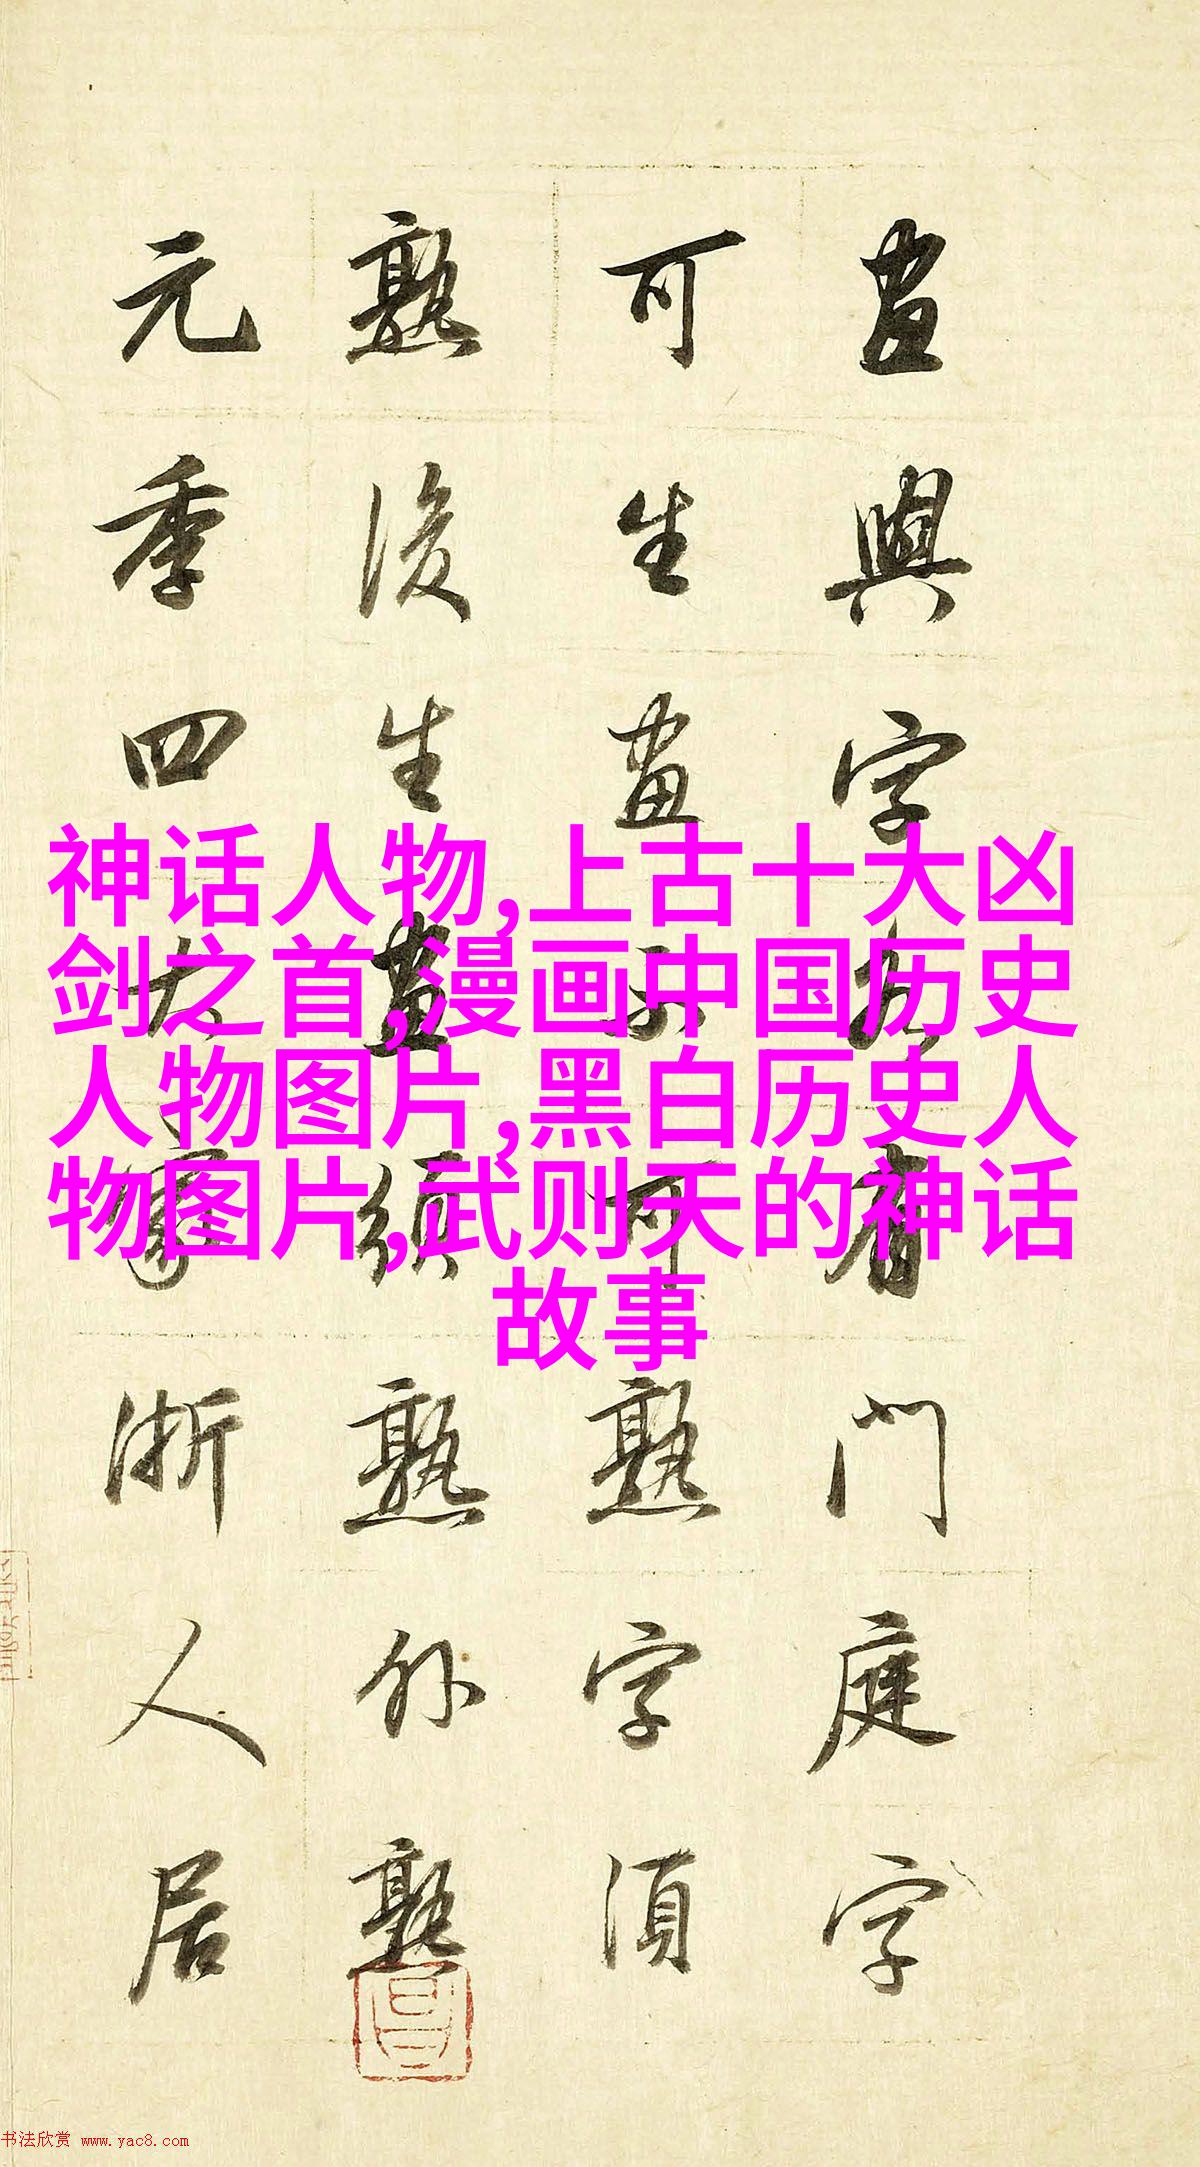 畫與字各有門庭字
可生畫不可熟字須
熟後生畫須熟外熟
元季四大家浙人居
神话人物,上古十大凶
剑之首,漫画中国历史
人物图片,黑白历史人
物图片,武则天的神话
故事
书法欣赏 www.yac8.com